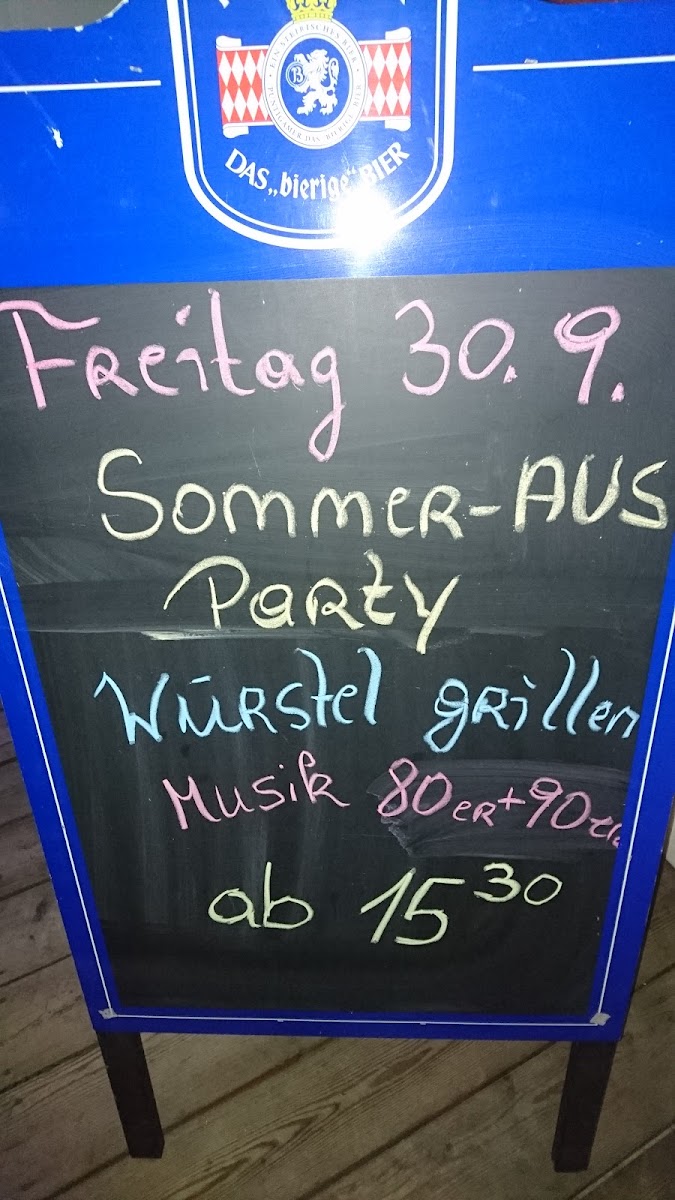 EIN STEIRISCHES BIER
PUNTIGAMER DAS BIERIGE BIER
DAS „bierige“ BIER
Freitag 30. 9.
Sommer-AUS
Party
Würstel grillen
Musik 80er+90er
ab 15³⁰